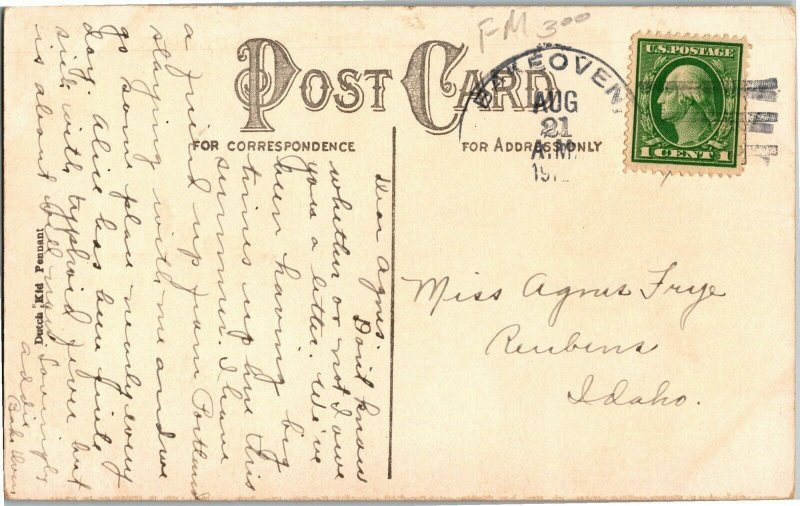 F-M 3⁰⁰
POST CARD
BAKEOVEN,
AUG
21
A.M.
191
U.S. POSTAGE
1 CENT 1
FOR CORRESPONDENCE
FOR ADDRESS ONLY
Dear Agnes.
Don't know
whether or not I owe
you a letter. We've
been having big
times up here this
summer. I have
a friend up from Portland
staying with me and we
go some place nearly every
day. Alice has been quite
sick with typhoid fever but
is about well now
Lovingly
Addie
(Bake Oven)
Dutch Kid Pennant
Miss Agnes Frye
Reubens
Idaho.